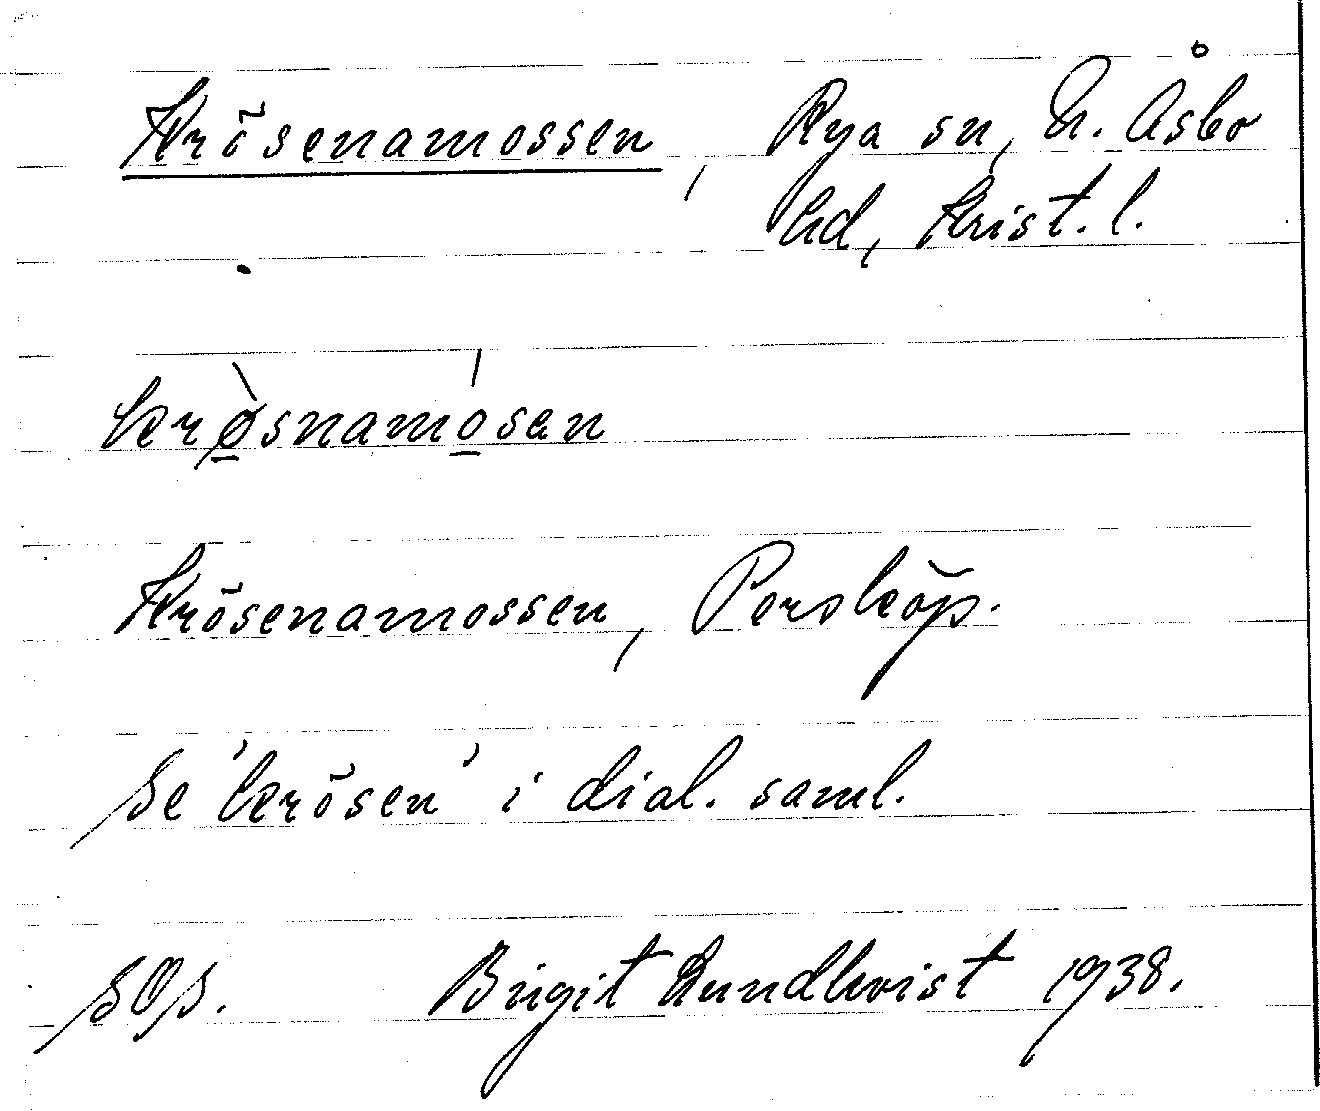 Krösenamossen, Rya sn, N. Åsbo
hd, Krist. l.
krø̀snamósen
Krösenamossen, Perslöp.
Se 'krösen' i dial. saml.
SOS. Birgit Lundkvist 1938.